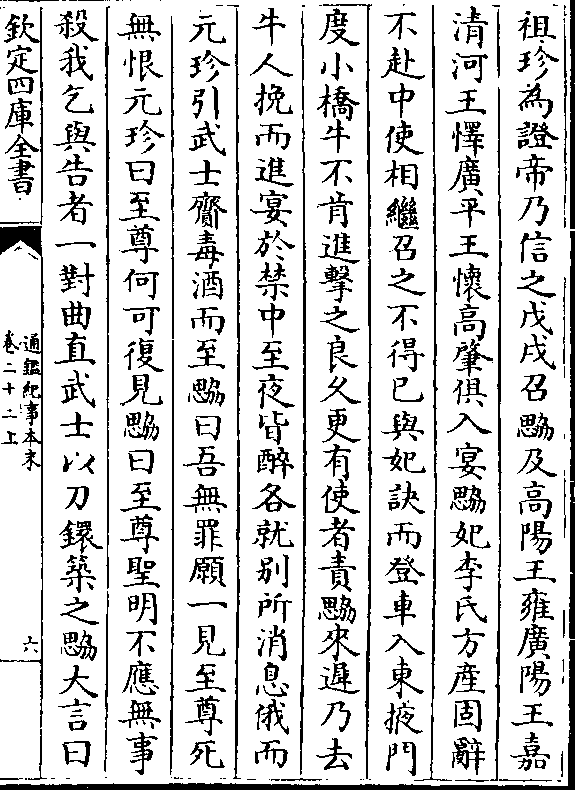 祖珍為證帝乃信之戊戌召勰及高陽王雍廣陽王嘉
清河王懌廣平王懷高肇俱入宴勰妃李氏方產固辭
不赴中使相繼召之不得已與妃訣而登車入東掖門
度小橋牛不肯進擊之良久更有使者責勰來遲乃去
牛人挽而進宴於禁中至夜皆醉各就别所消息俄而
元珍引武士齎毒酒而至勰曰吾無罪願一見至尊死
無恨元珍曰至尊何可復見勰曰至尊聖明不應無事
殺我乞與告者一對曲直武士以刀鐶築之勰大言曰
欽定四庫全書
通鑑紀事本末
卷二十二上
六